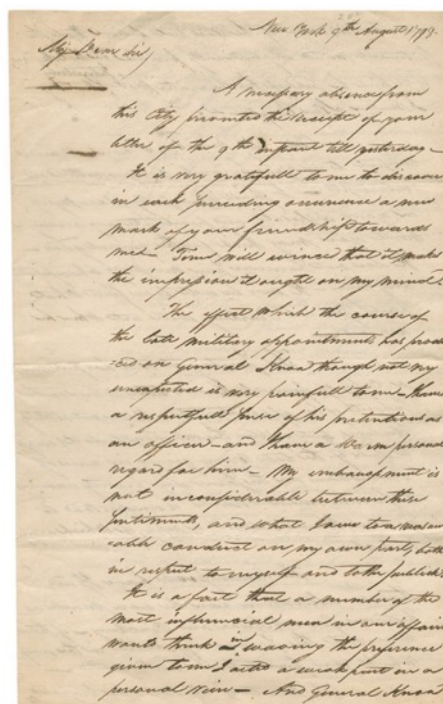 New York 9th August 1798.
My Dear Sir,
A necessary absence from
this City prevented the receipt of your
letter of the 9th instant till yesterday—
It is very gratefull to me to discover
in each preceding occurrence a new
mark of your friendship towards
me— Time will evince that it makes
the impression it ought on my mind.
The effect which the course of
the late military appointments has prod
=ced on General Knox though not very
unexpected is very painfull to me— I have
a respectfull sense of his pretentions as
an officer—and I have a warm personal
regard for him— My embarrassment is
not inconsiderable between these
sentiments, and what I owe to a reason
=able conduct on my own part, both
in respect to myself and to the publick.
It is a fact that a number of the
most influencial men in our affairs
would think in waving the preference
given to me I acted a weak part in a
personal view— And General Knox